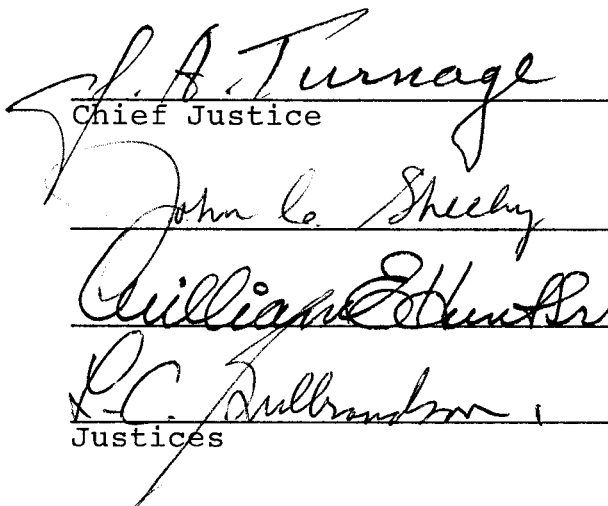 J. A. Turnage
Chief Justice
John C. Sheehy
William E. Hunt Sr
L. C. Gulbrandson
Justices